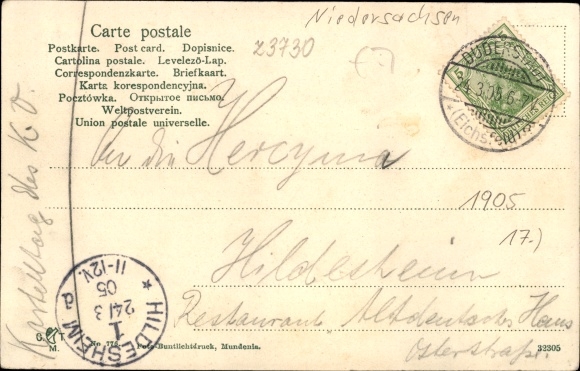 Niedersachsen
Carte postale
Postkarte. Post card. Dopisnice.
Cartolina postale. Levelező-Lap.
Correspondenzkarte. Briefkaart.
Karta korespondencyjna.
Pocztówka. Открытое письмо.
Weltpostverein.
Union postale universelle.
23730
DUDERSTADT
(Eichsfeld)
An die Hercynia
1905
17.)
Hildesheim
Restaurant Altdeutsches Haus
Osterstraße.
HILDESHEIM
1
24/3
05
11-12V.
des
M.
Foto-Buntlichtdruck, Mundenia.
32305